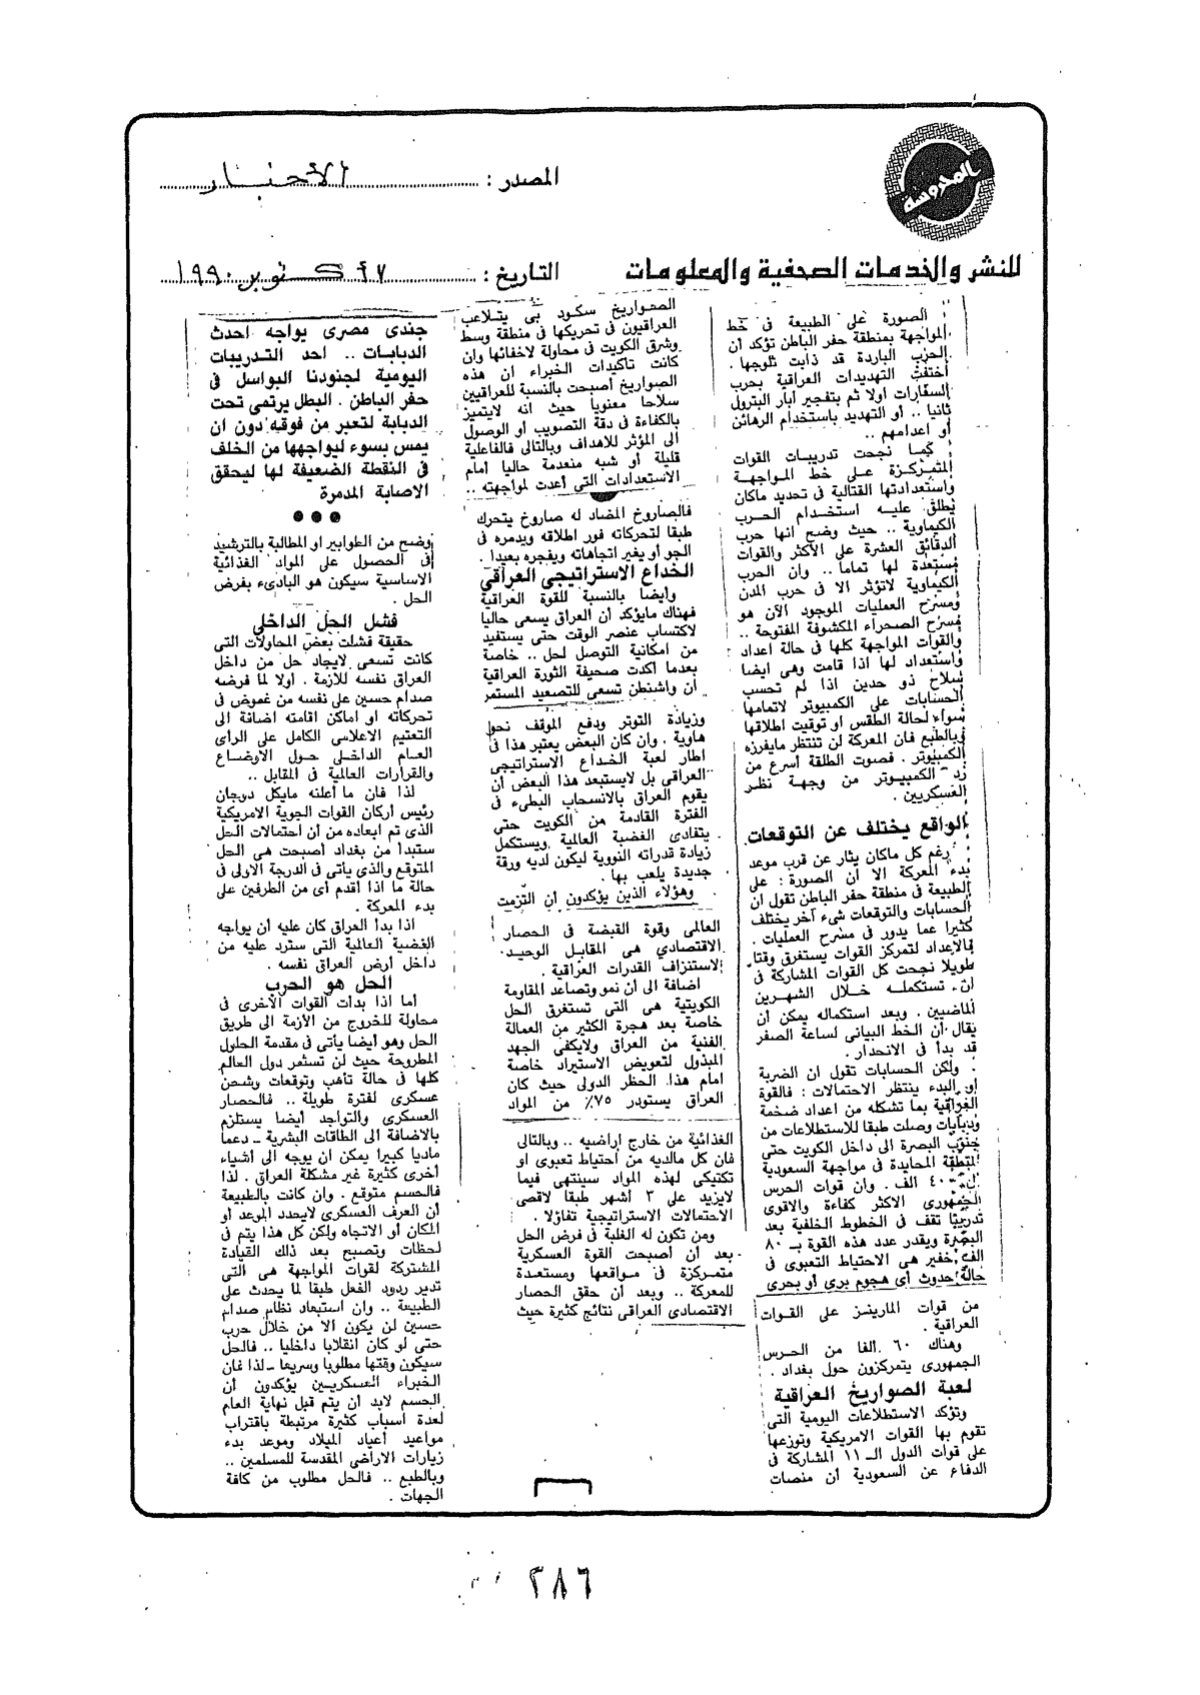 المحروسة
المصدر : الأخبار
للنشر والخدمات الصحفية والمعلومات
التاريخ : ٢٧ أكتوبر ١٩٩٠
الصورة على الطبيعة فى خط
المواجهة بمنطقة حفر الباطن تؤكد أن
الحرب الباردة قد ذابت ثلوجها .
أختفت التهديدات العراقية بحرب
السفارات اولا ثم بتفجير آبار البترول
ثانيا .. أو التهديد باستخدام الرهائن
أو اعدامهم ..
كما نجحت تدريبات القوات
المتمركزة على خط المواجهة
واستعدادتها القتالية فى تحديد ماكان
يطلق عليه استخدام الحرب
الكيماوية .. حيث وضح انها حرب
الدقائق العشرة على الأكثر والقوات
مستعدة لها تماما .. وان الحرب
الكيماوية لاتؤثر الا فى حرب المدن
ومسرح العمليات الموجود الآن هو
مسرح الصحراء المكشوفة المفتوحة ..
والقوات المواجهة كلها فى حالة اعداد
واستعداد لها اذا قامت وهى ايضا
سلاح ذو حدين اذا لم تحسب
الحسابات على الكمبيوتر لاتمامها
سواء لحالة الطقس او توقيت اطلاقها
وبالطبع فان المعركة لن تنتظر مايفرزه
الكمبيوتر . فصوت الطلقة أسرع من
رد الكمبيوتر من وجهة نظر
العسكريين .
الواقع يختلف عن التوقعات
رغم كل ماكان يثار عن قرب موعد
بدء المعركة الا أن الصورة : على
الطبيعة فى منطقة حفر الباطن تقول ان
الحسابات والتوقعات شىء آخر يختلف
كثيرا عما يدور فى مسرح العمليات .
فالاعداد لتمركز القوات يستغرق وقتا
طويلا نجحت كل القوات المشاركة فى
ان تستكمله خلال الشهرين
الماضيين . وبعد استكماله يمكن أن
يقال أن الخط البيانى لساعة الصفر
قد بدأ فى الانحدار .
ولكن الحسابات تقول ان الضربة
أو البدء ينتظر الاحتمالات : فالقوة
العراقية بما تشكله من اعداد ضخمة
ودبابات وصلت طبقا للاستطلاعات من
جنوب البصرة الى داخل الكويت حتى
المنطقة المحايدة فى مواجهة السعودية
الى ٤٠٠ الف . وان قوات الحرس
الجمهورى الاكثر كفاءة والاقوى
تدريبا تقف فى الخطوط الخلفية بعد
البصرة ويقدر عدد هذه القوة بـ ٨٠
الف خفير هى الاحتياط التعبوى فى
حالة حدوث أى هجوم برى أو بحرى
من قوات المارينز على القوات
العراقية .
وهناك ٦٠ الفا من الحرس
الجمهورى يتمركزون حول بغداد .
لعبة الصواريخ العراقية
وتؤكد الاستطلاعات اليومية التى
تقوم بها القوات الامريكية وتوزعها
على قوات الدول الـ ١١ المشاركة فى
الدفاع عن السعودية أن منصات
الصواريخ سكود بى يتلاعب
العراقيون فى تحريكها فى منطقة وسط
وشرق الكويت فى محاولة لاخفائها وان
كانت تاكيدات الخبراء ان هذه
الصواريخ أصبحت بالنسبة للعراقيين
سلاحا معنويا حيث انه لايتميز
بالكفاءة فى دقة التصويب أو الوصول
الى المؤثر للأهداف وبالتالى فالفاعلية
قليلة أو شبه منعدمة حاليا أمام
الاستعدادات التى أعدت لمواجهته ..
فالصاروخ المضاد له صاروخ يتحرك
طبقا لتحركاته فور اطلاقه ويدمره فى
الجو أو يغير اتجاهاته ويفجره بعيدا .
الخداع الاستراتيجى العراقى
وأيضا بالنسبة للقوة العراقية
فهناك مايؤكد أن العراق يسعى حاليا
لاكتساب عنصر الوقت حتى يستفيد
من امكانية التوصل لحل .. خاصة
بعدما اكدت صحيفة الثورة العراقية
أن واشنطن تسعى للتصعيد المستمر
وزيادة التوتر ودفع الموقف نحو
هاوية . وان كان البعض يعتبر هذا فى
اطار لعبة الخداع الاستراتيجى
العراقى بل لايستبعد هذا البعض أن
يقوم العراق بالانسحاب البطىء فى
الفترة القادمة من الكويت حتى
يتفادى الغضبة العالية ويستكمل
زيادة قدراته النووية ليكون لديه ورقة
جديدة يلعب بها .
وهؤلاء الذين يؤكدون أن التزمت
العالمى وقوة القبضة فى الحصار
الاقتصادى هى المقابل الوحيد
لاستنزاف القدرات العراقية .
اضافة الى أن نمو وتصاعد المقاومة
الكويتية هى التى تستغرق الحل
خاصة بعد هجرة الكثير من العمالة
الفنية من العراق ولايكفى الجهد
المبذول لتعويض الاستيراد خاصة
امام هذا الحظر الدولى حيث كان
العراق يستورد ٧٥٪ من المواد
الغذائية من خارج اراضيه .. وبالتالى
فان كل مالديه من أحتياط تعبوى او
تكتيكى لهذه المواد سينتهى فيما
لايزيد على ٣ أشهر طبقا لاقصى
الاحتمالات الاستراتيجية تفاؤلا .
ومن تكون له الغلبة فى فرض الحل
بعد أن أصبحت القوة العسكرية
متمركزة فى مواقعها ومستعدة
للمعركة .. وبعد أن حقق الحصار
الاقتصادى العراقى نتائج كثيرة حيث
جندى مصرى يواجه احدث
الدبابات .. احد التدريبات
اليومية لجنودنا البواسل فى
حفر الباطن . البطل يرتمى تحت
الدبابة لتعبر من فوقه دون ان
يمس بسوء ليواجهها من الخلف
فى النقطة الضعيفة لها ليحقق
الاصابة المدمرة
●●●
وضح من الطوابير او المطالبة بالترشيد
فى الحصول على المواد الغذائية
الاساسية سيكون هو البادىء بفرض
الحل .
فشل الحل الداخلى
حقيقة فشلت بعض المحاولات التى
كانت تسعى لايجاد حل من داخل
العراق نفسه للأزمة . أولا لما فرضه
صدام حسين على نفسه من غموض فى
تحركاته او اماكن اقامته اضافة الى
التعتيم الاعلامى الكامل على الرأى
العام الداخلى حول الاوضاع
والقرارات العالمية فى المقابل ..
لذا فان ما أعلنه مايكل دوجان
رئيس أركان القوات الجوية الامريكية
الذى تم ابعاده من أن أحتمالات الحل
ستبدأ من بغداد أصبحت هى الحل
المتوقع والذى يأتى فى الدرجة الاولى فى
حالة ما اذا أقدم أى من الطرفين على
بدء المعركة .
اذا بدأ العراق كان عليه أن يواجه
الغضبة العالية التى سترد عليه من
داخل أرض العراق نفسه .
الحل هو الحرب
أما اذا بدات القوات الأخرى فى
محاولة للخروج من الأزمة الى طريق
الحل وهو أيضا يأتى فى مقدمة الحلول
المطروحة حيث لن تستمر دول العالم
كلها فى حالة تأهب وتوقعات وشحن
عسكرى لفترة طويلة .. فالحصار
العسكرى والتواجد أيضا يستلزم
بالاضافة الى الطاقات البشرية ـ دعما
ماديا كبيرا يمكن ان يوجه الى أشياء
أخرى كثيرة غير مشكلة العراق . لذا
فالحسم متوقع . وان كانت بالطبيعة
أن العرف العسكرى لايحدد الموعد أو
المكان أو الاتجاه ولكن كل هذا يتم فى
لحظات وتصبح بعد ذلك القيادة
المشتركة لقوات المواجهة هى التى
تدير ردود الفعل طبقا لما يحدث على
الطبيعة .. وان استبعاد نظام صدام
حسين لن يكون الا من خلال حرب
حتى لو كان انقلابا داخليا .. فالحل
سيكون وقتها مطلوبا وسريعا ـ لذا فان
الخبراء العسكريين يؤكدون أن
الحسم لابد أن يتم قبل نهاية العام
لعدة أسباب كثيرة مرتبطة باقتراب
مواعيد أعياد الميلاد وموعد بدء
زيارات الاراضى المقدسة للمسلمين ..
وبالطبع .. فالحل مطلوب من كافة
الجهات .
٢٨٦